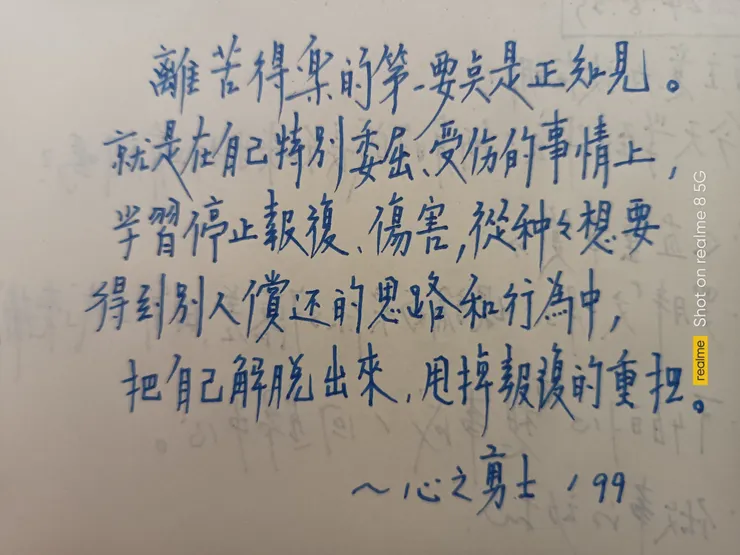 離苦得楽的第一要点是正知見。
就是在自己特别委屈、受伤的事情上，
学習停止報復、傷害，從种々想要
得到别人償还的思路和行為中，
把自己解脱出來，甩掉報復的重担。
～心之勇士 '99
realme Shot on realme 8 5G